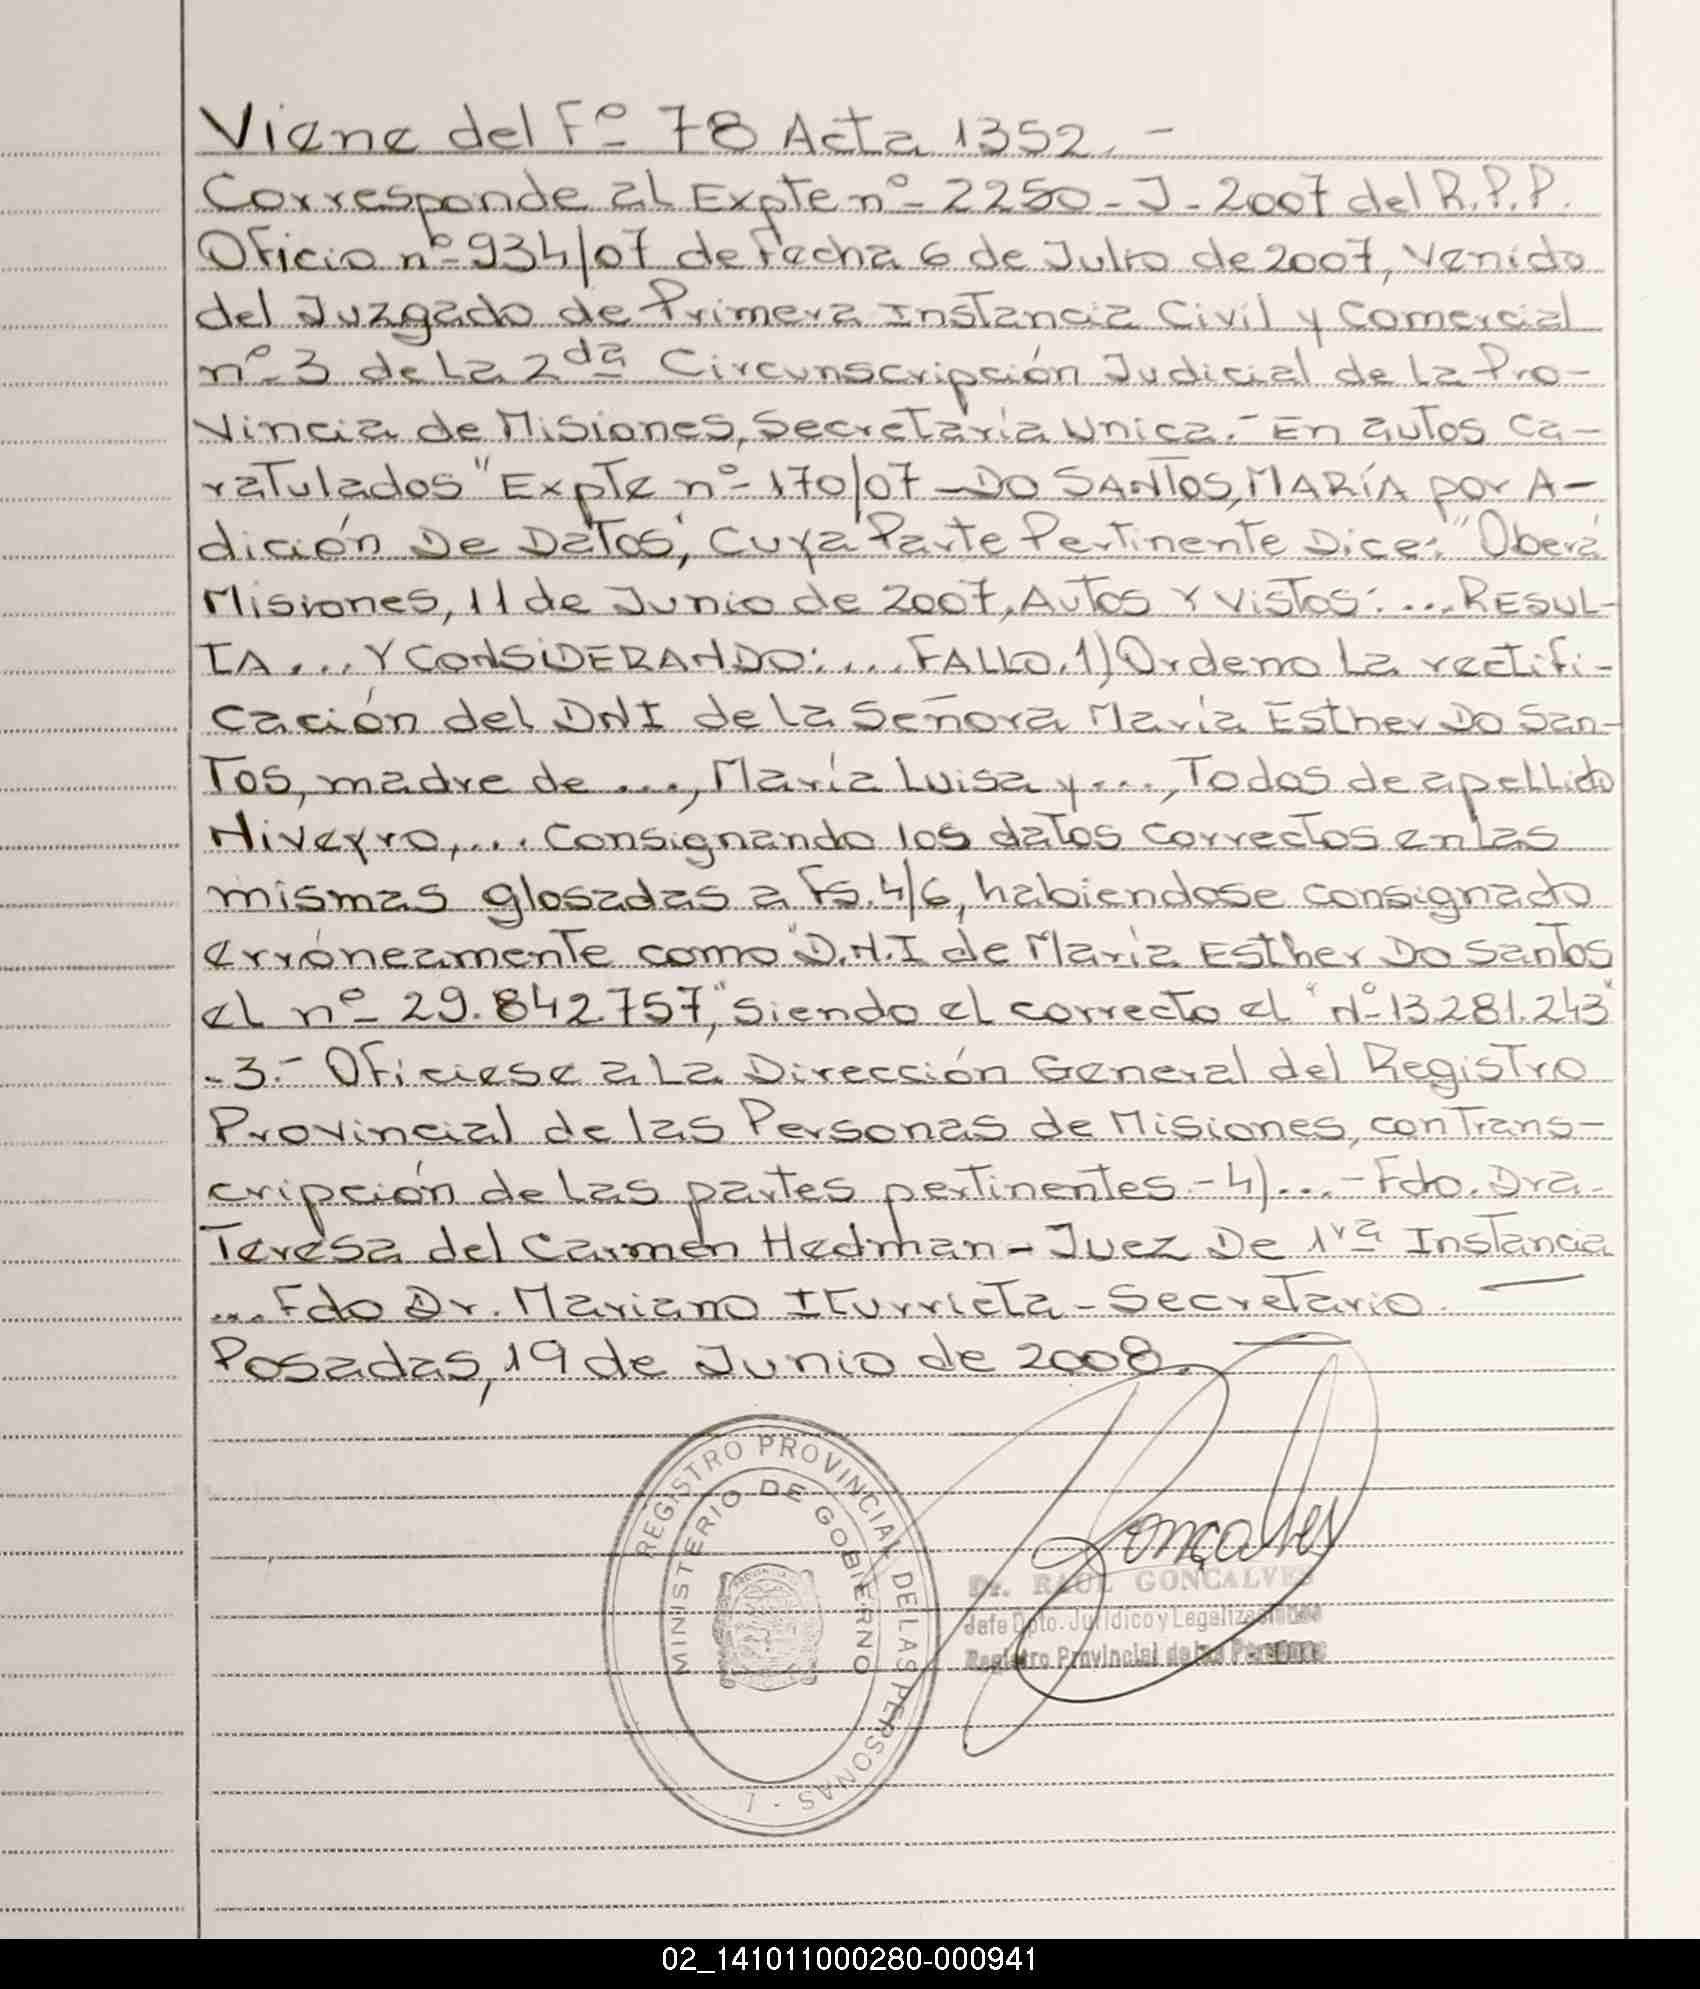 Viene del Fº 78 Acta 1352.-
Corresponde al Expte nº 2250-J-2007 del R.P.P.
Oficio nº 934/07 de fecha 6 de Julio de 2007, venido
del Juzgado de Primera Instancia Civil y Comercial
nº 3 de la 2da Circunscripción Judicial de la Pro-
vincia de Misiones, Secretaría Unica.- En autos ca-
ratulados "Expte nº 170/07 - DO SANTOS, MARÍA por A-
dición De Datos", Cuya Parte Pertinente Dice: "Oberá
Misiones, 11 de Junio de 2007, Autos Y Vistos: ... RESUL-
TA ... Y CONSIDERANDO: .... FALLO. 1) Ordeno la rectifi-
cación del DNI de la Señora María Esther Do San-
tos, madre de ..., María Luisa y ..., Todos de apellido
Niveyro, ... Consignando los datos correctos en las
mismas glosadas a Fs. 4/6, habiendose consignado
erróneamente como "D.N.I de María Esther Do Santos
el nº 29.842.757," siendo el correcto el "Nº 13.281.243"
-3.- Ofíciese a la Dirección General del Registro
Provincial de las Personas de Misiones, con Trans-
cripción de las partes pertinentes.-4)...- Fdo. Dra.
Teresa del Carmen Hedman - Juez De 1ra Instancia
... Fdo Dr. Mariano Iturrieta - Secretario.
Posadas, 19 de Junio de 2008.
REGISTRO PROVINCIAL DE LAS PERSONAS - 7
MINISTERIO DE GOBIERNO
Gonçalves
Dr. RAUL GONCALVES
Jefe Dpto. Jurídico y Legalizaciones
Registro Provincial de las Personas
02_141011000280-000941